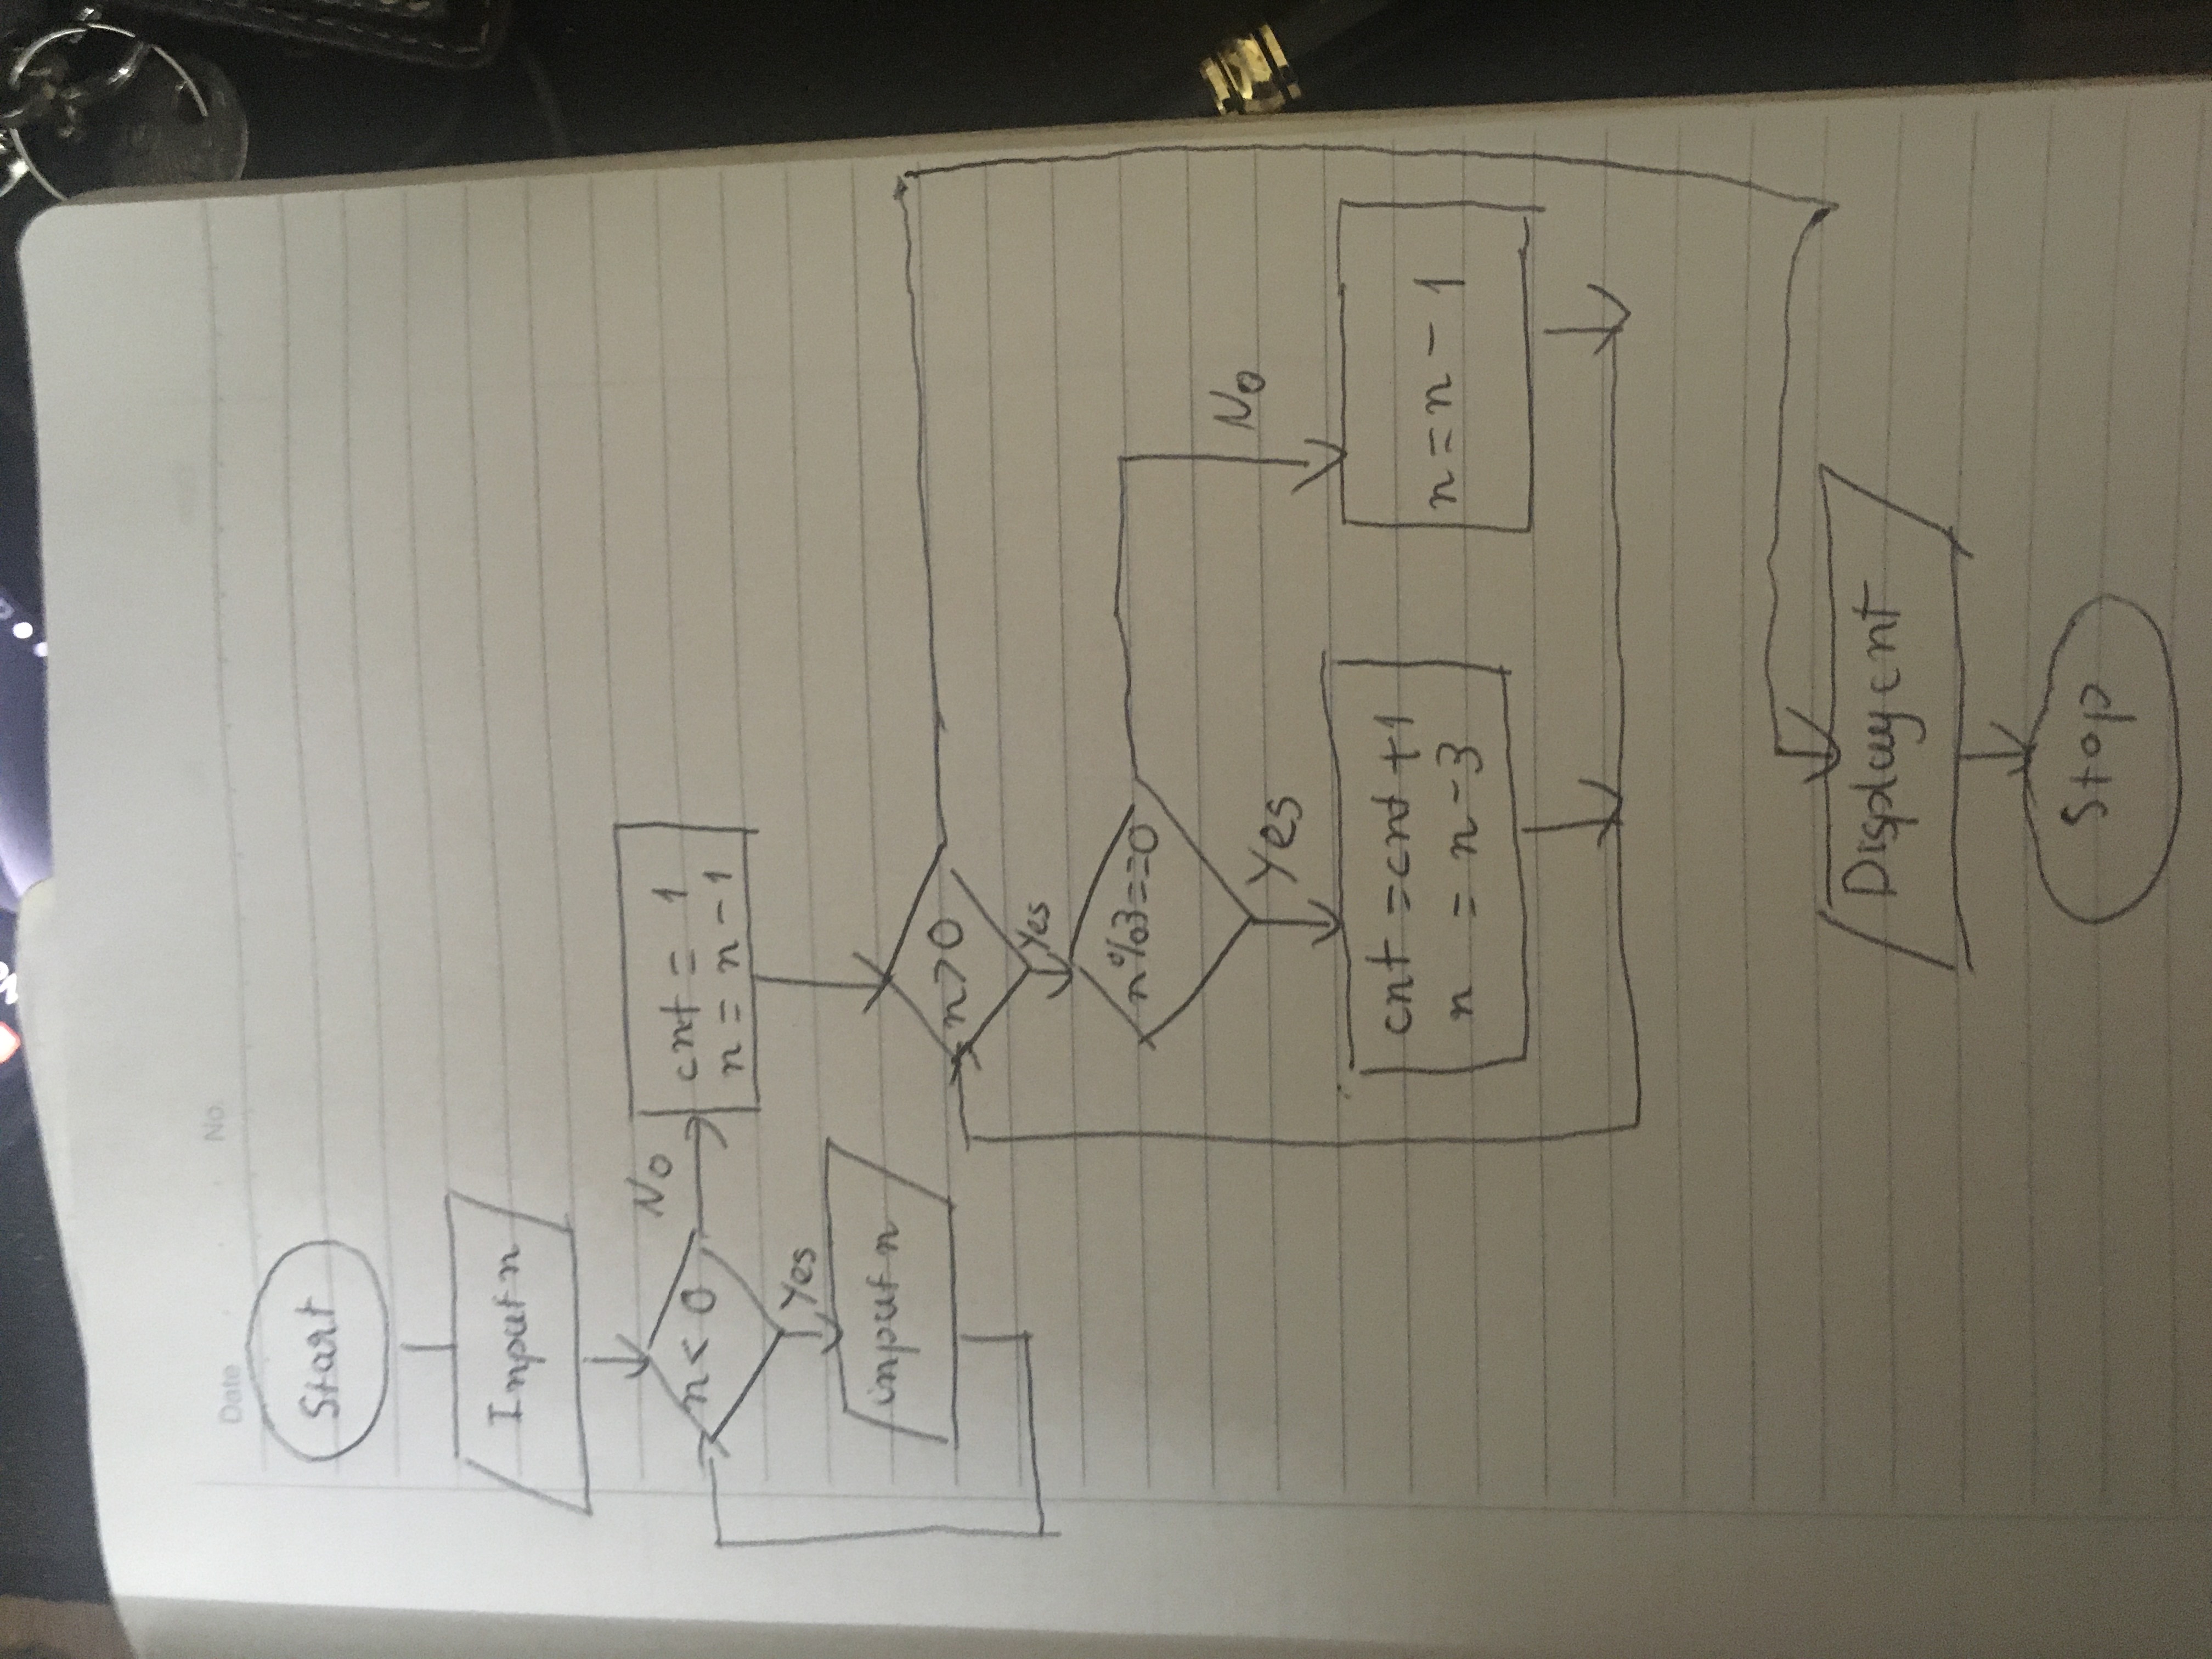 Date No.
Start
Input n
n < 0
No
cnt = 1
n = n - 1
Yes
input n
n > 0
Yes
n%3==0
No
Yes
cnt = cnt + 1
n = n - 3
n = n - 1
Display cnt
Stop